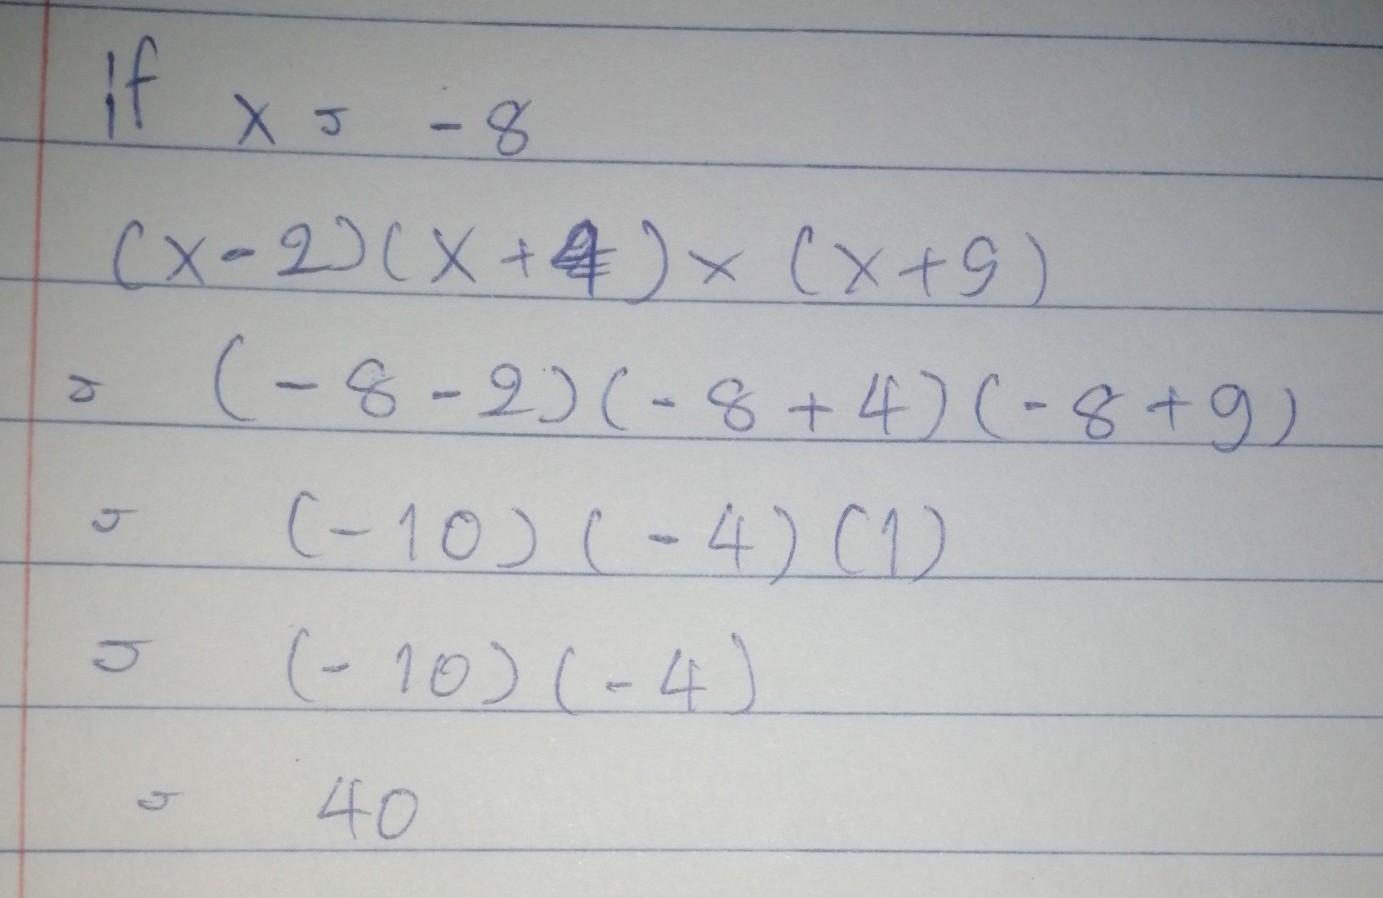 if x = -8
(x-2)(x+4)×(x+9)
= (-8-2)(-8+4)(-8+9)
= (-10)(-4)(1)
= (-10)(-4)
= 40